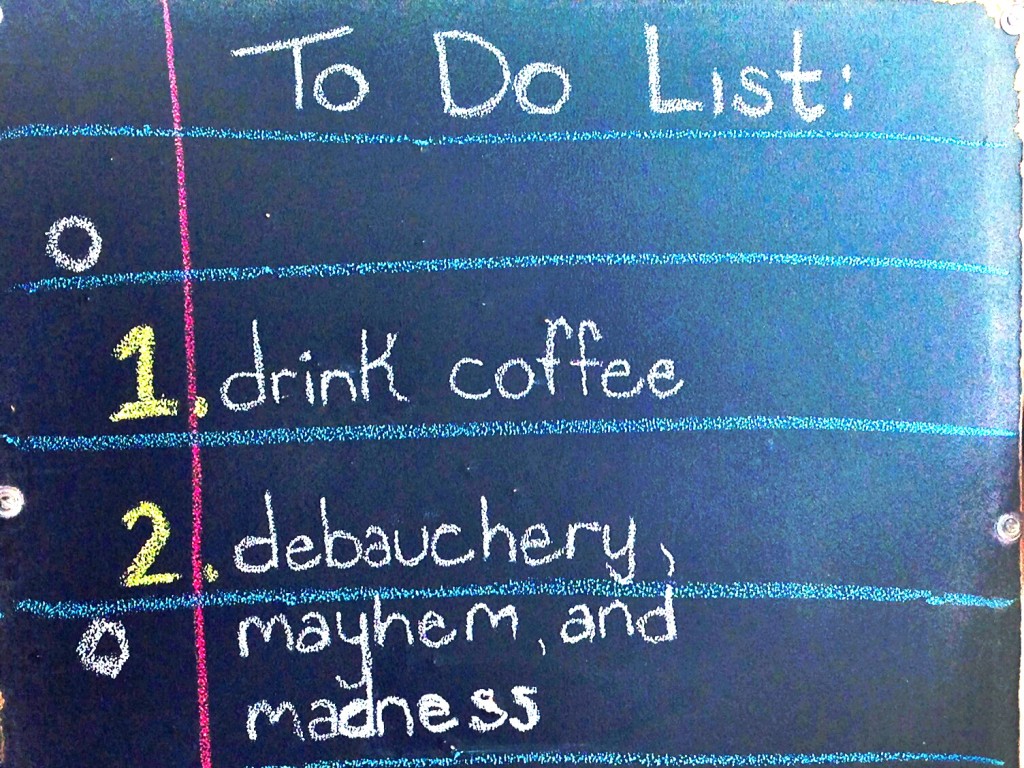 To Do List:
1. drink coffee
2. debauchery,
mayhem, and
madness